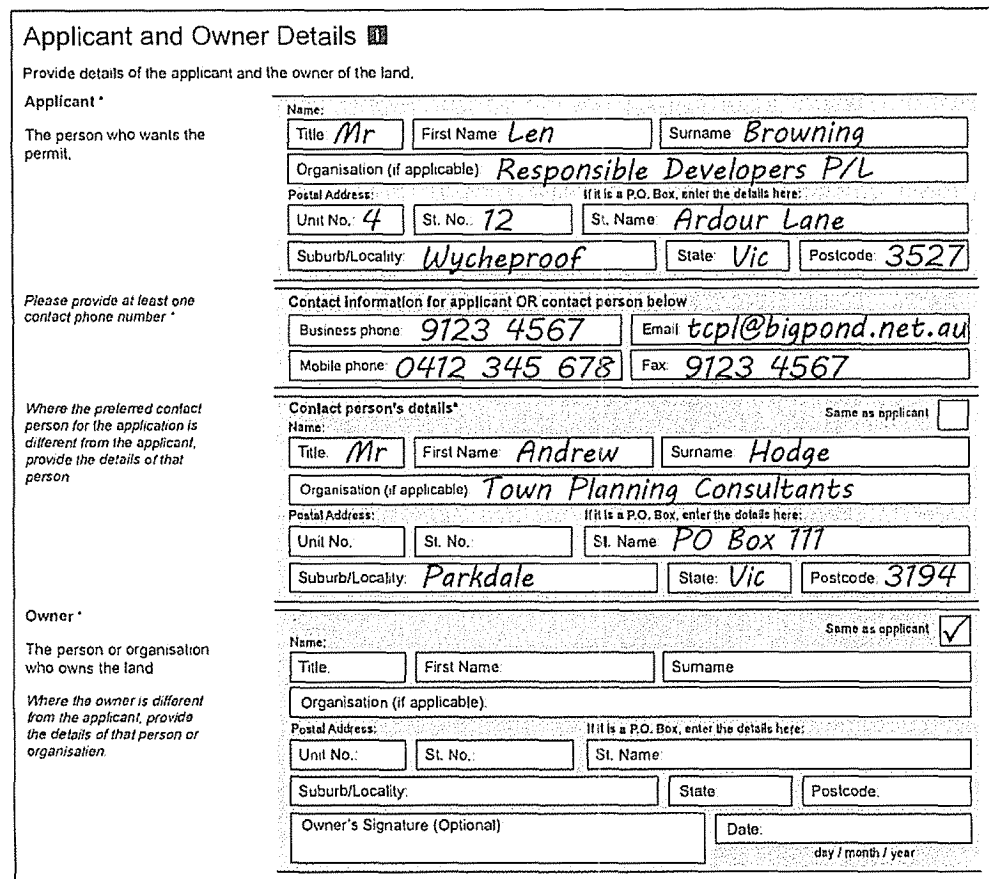 Applicant and Owner Details i
Provide details of the applicant and the owner of the land.
Applicant *
The person who wants the
permit.
Name:
Title: Mr First Name: Len Surname: Browning
Organisation (if applicable): Responsible Developers P/L
Postal Address: If it is a P.O. Box, enter the details here:
Unit No.: 4 St. No.: 12 St. Name: Ardour Lane
Suburb/Locality: Wycheproof State: Vic Postcode: 3527
Please provide at least one
contact phone number *
Contact information for applicant OR contact person below
Business phone: 9123 4567 Email: tcpl@bigpond.net.au
Mobile phone: 0412 345 678 Fax: 9123 4567
Where the preferred contact
person for the application is
different from the applicant,
provide the details of that
person
Contact person's details* Same as applicant
Name:
Title: Mr First Name: Andrew Surname: Hodge
Organisation (if applicable): Town Planning Consultants
Postal Address: If it is a P.O. Box, enter the details here:
Unit No.: St. No.: St. Name: PO Box 111
Suburb/Locality: Parkdale State: Vic Postcode: 3194
Owner *
The person or organisation
who owns the land
Where the owner is different
from the applicant, provide
the details of that person or
organisation.
Same as applicant ✓
Name:
Title: First Name: Surname:
Organisation (if applicable):
Postal Address: If it is a P.O. Box, enter the details here:
Unit No.: St. No.: St. Name:
Suburb/Locality: State: Postcode:
Owner's Signature (Optional) Date:
day / month / year